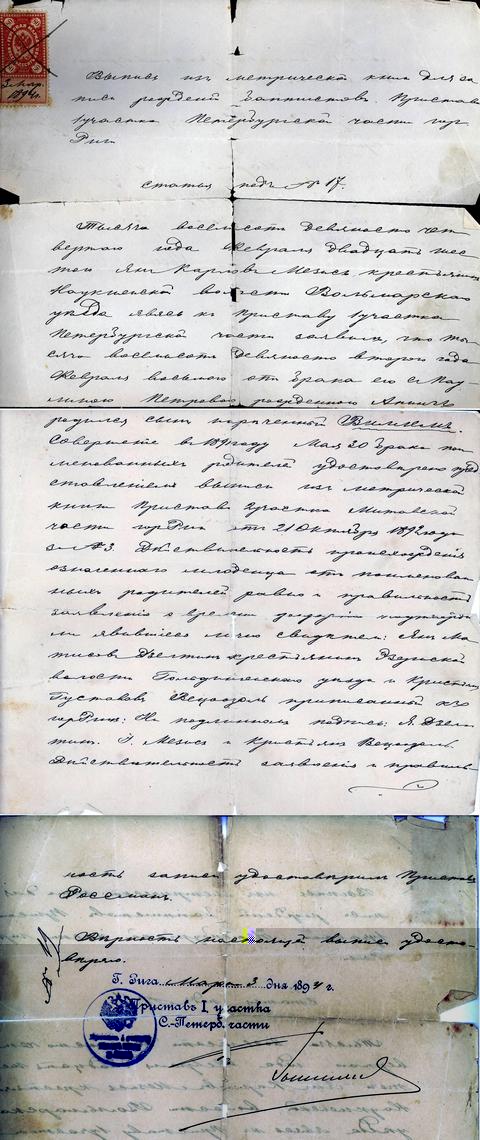 3 Мар.
1894 г.
Выпись изъ метрической книги для за
писи рождений баптистовъ Пристава
1 участка Петербургской части гор.
Риги
статья подъ № 17.
Тысяча восемьсотъ девяносто чет
вертого года Февраля двадцать шес
того Янъ Карловъ Мезисъ крестьянинъ
волости Вольмарскаго
уезда явясь къ Приставу 1 участка
Петербургской части заявилъ, что ты
сяча восемьсотъ девяносто второго года
Февраля восьмого отъ брака его съ
Петровою рожденною
родился сынъ нареченный Вильямъ.
Совершение въ 1891 году Мая 30 брака пои
менованныхъ родителей удостоверено пред
ставлениемъ выписи изъ метрической
книги Пристава 2 участка Митавской
части гор. Риги отъ 21 Октября 1892 года
за № 3. Действительность происхождения
означеннаго младенца отъ поименован
ныхъ родителей равно и правильность
заявления о времени рождения подтверди
ли явившиеся лично свидетели: Янъ Ма
тисовъ крестьянинъ
волости уезда и Кристапъ
Густавовъ приписанный къ
гор. Риге: На подлинномъ подписи: Я. Дзел
тинъ. Я. Мезисъ и Кристапъ
Действительность заявления и правиль
ность записи удостоверилъ Приставъ
Россманъ.
№ 19
Верность настоящей выписи удосто-
веряю.
Г. Рига Марта 3 дня 1894 г.
Приставъ I участка
С.-Петерб. части